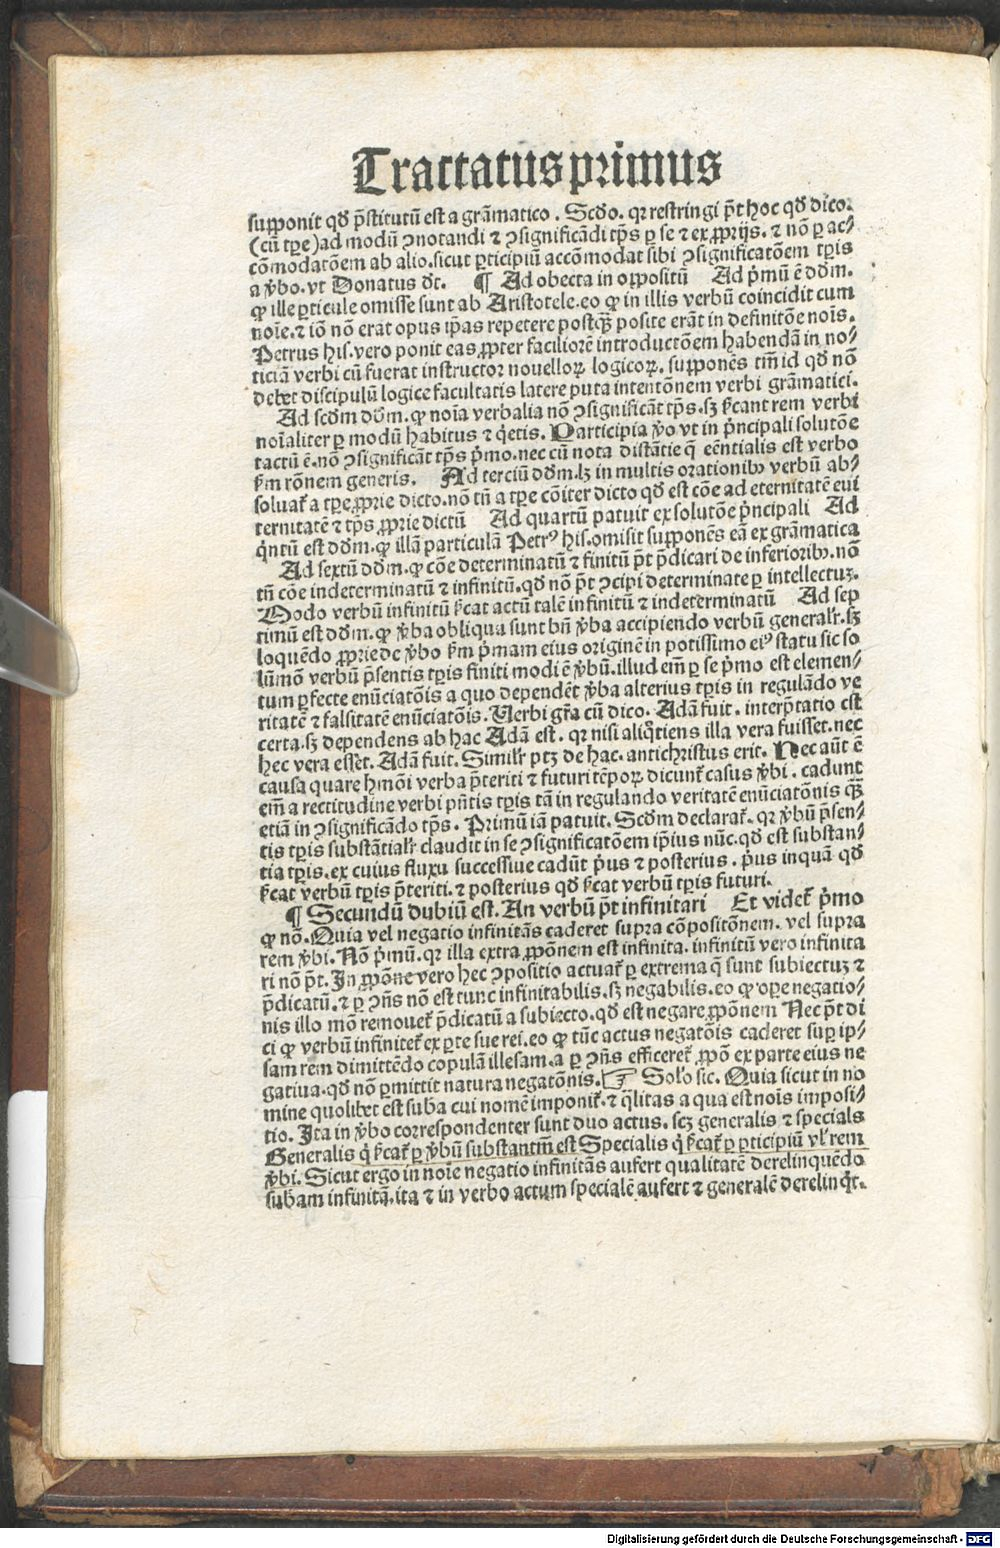 Tractatus primus
supponit qđ p̄stitutū est a grāmatico. Scđo. qꝛ restringi p̄t hoc qđ dico.
(cū tp̄e) ad modū ꝯnotandi ⁊ ꝯsignificādi tp̄s ꝑ se ⁊ ex ꝓprijs. ⁊ nō ꝑ ac⸗
cōmodatōem ab alio. sicut ꝑticipiū accōmodat sibi ꝯsignificatōem tꝑis
a v̓bo. vt Donatus dt̄. ¶ Ad obecta in oppositū Ad p̓mū ē dōm.
ꝙ ille ꝑticule omisse sunt ab Aristotele. eo ꝙ in illis verbū coincidit cum
noīe. ⁊ iō nō erat opus ip̄as repetere postꝙ̄ posite erāt in definitōe noīs.
Petrus his. vero ponit eas ꝓpter faciliorē introductōem habendā in no⸗
ticiā verbi cū fuerat instructor nouelloꝝ logicoꝝ. supponēs tm̄ id qđ nō
debet discipulū logice facultatis latere puta intentōnem verbi grāmatici.
Ad scđm dōm. ꝙ noīa verbalia nō ꝯsignificāt tp̄s. sꝫ s̓cant rem verbi
noīaliter ꝑ modū habitus ⁊ q̓etis. Participia v̓o vt in p̓ncipali solutōe
tactū ē. nō ꝯsignificāt tp̄s p̓mo. nec cū nota distātie q̄ eēntialis est verbo
s̓m rōnem generis. Ad terciū dōm. lꝫ in multis orationibꝰ verbū ab⸗
soluat̓ a tp̄e ꝓprie dicto. nō tn̄ a tp̄e cōiter dicto qđ est cōe ad eternitatē eui
ternitatē ⁊ tp̄s ꝓprie dictū Ad quartū patuit ex solutōe p̓ncipali Ad
q̓ntū est dōm. ꝙ illā particulā Petrꝰ his. omisit supponēs eā ex grāmatica
Ad sextū dōm. ꝙ cōe determinatū ⁊ finitū p̄t p̄dicari de inferioribꝰ. nō
tn̄ cōe indeterminatū ⁊ infinitū. qđ nō p̄t ꝯcipi determinate ꝑ intellectuꝫ.
Modo verbū infinitū s̓cat actū talē infinitū ⁊ indeterminatū Ad sep
timū est dōm. ꝙ v̓ba obliqua sunt bn̄ v̓ba accipiendo verbū generalr̓. sꝫ
loquēdo ꝓprie de v̓bo s̓m p̓mam eius originē in potissimo eiꝰ statu sic so
lūmō verbū p̄sentis tꝑis finiti modi ē v̓bū. illud em̄ ꝑ se p̓mo est elemen⸗
tum ꝑfecte enūciatōis a quo dependēt v̓ba alterius tꝑis in regulādo ve
ritatē ⁊ falsitatē enūciatōis. Verbi gr̄a cū dico. Adā fuit. interp̄tatio est
certa. sꝫ dependens ab hac Adā est. qꝛ nisi aliq̄tiens illa vera fuisset. nec
hec vera esset. Adā fuit. Similr̓ ptꝫ de hac. antichristus erit. Nec aūt ē
causa quare hmōi verba p̄teriti ⁊ futuri tēpoꝝ dicunt̓ casus v̓bi. cadunt
em̄ a rectitudine verbi pn̄tis tꝑis tā in regulando veritatē enūciatōnis qꝙ̄
etiā in ꝯsignificādo tp̄s. Primū iā patuit. Scđm declarat̓. qꝛ v̓bū p̄sen⸗
tis tꝑis substātialr̓ claudit in se ꝯsignificatōem ip̄ius nūc. qđ est substan⸗
tia tꝑis. ex cuius fluxu successiue cadūt p̓us ⁊ posterius. p̓us inquā qđ
s̓cat verbū tꝑis p̄teriti. ⁊ posterius qđ s̓cat verbū tꝑis futuri.
¶ Secundū dubiū est. An verbū p̄t infinitari Et videt̓ p̓mo
ꝙ nō. Quia vel negatio infinitās caderet supra cōpositōnem. vel supra
rem v̓bi. Nō p̓mū. qꝛ illa extra ꝓpōnem est infinita. infinitū vero infinita
ri nō p̄t. In ꝓpōne vero hec ꝯpositio actuat̓ ꝑ extrema q̄ sunt subiectuꝫ ⁊
p̄dicatū. ⁊ ꝑ ꝯn̄s nō est tunc infinitabilis. sꝫ negabilis. eo ꝙ ope negatio⸗
nis illo mō remouet̓ p̄dicatū a subiecto. qđ est negare ꝓpōnem Nec p̄t di
ci ꝙ verbū infinitet̓ ex ꝑte sue rei. eo ꝙ tūc actus negatōis caderet suꝑ ip⸗
sam rem dimittēdo copulā illesam. a ꝑ ꝯn̄s efficeret̓ ꝓpō ex parte eius ne
gatiua. qđ nō ꝑmittit natura negatōnis. ☞ Solo sic. Quia sicut in no
mine quolibet est suba cui nomē imponit̓. ⁊ q̄litas a qua est noīs imposi⸗
tio. Ita in v̓bo correspondenter sunt duo actus. scꝫ generalis ⁊ specials
Generalis q̓ s̓cat̓ ꝑ v̓bū substantm̄ est Specialis q̓ s̓cat̓ ꝑ ꝑticipiū vl̓ rem
v̓bi. Sicut ergo in noīe negatio infinitās aufert qualitatē derelinquēdo
subam infinitā. ita ⁊ in verbo actum specialē aufert ⁊ generalē derelinq̓t.
Digitalisierung gefördert durch die Deutsche Forschungsgemeinschaft - DFG